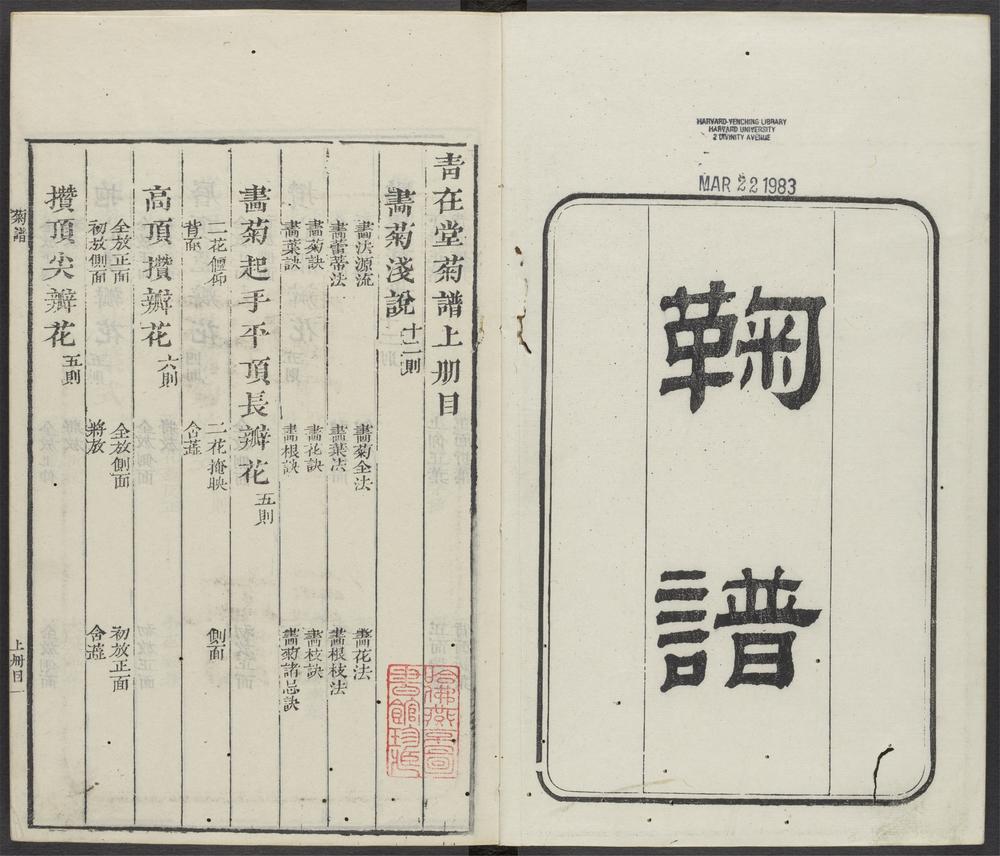 HARVARD-YENCHING LIBRARY
HARVARD UNIVERSITY
2 DIVINITY AVENUE
MAR 22 1983
鞠譜
青在堂菊譜上册目
畫菊淺說十二則
畫法源流 畫菊全法 畫花法
畫蕾蒂法 畫葉法 畫根枝法
畫菊訣 畫花訣 畫枝訣
畫葉訣 畫根訣 畫菊諸忌訣
畫菊起手平頂長瓣花五則
二花偃仰 二花掩映 側面
背面 含蕋
高頂攢瓣花六則
全放正面 全放側面 初放正面
初放側面 將放 含蕋
攢頂尖瓣花五則
菊譜
上册目一
哈佛燕京圖
書館珍藏